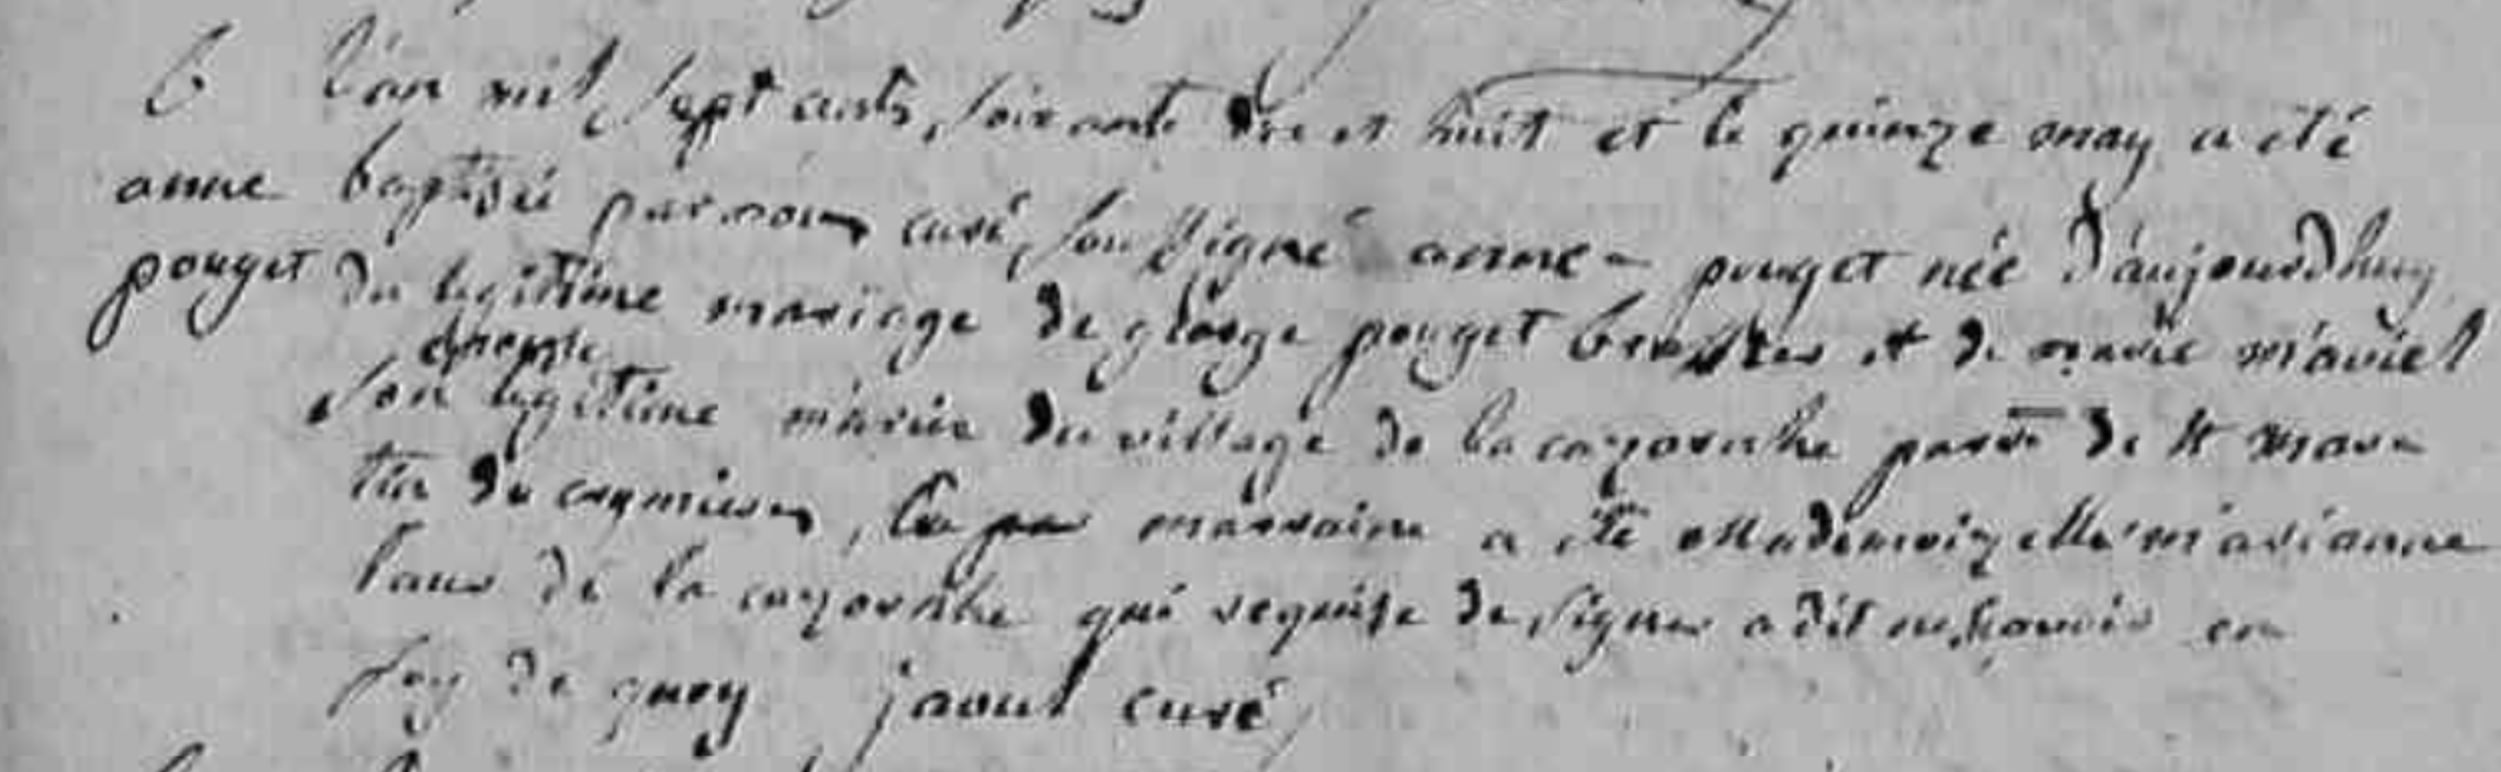 B l'an mil sept cents soixante dix et huit et le quinze may a été
anne baptisée par nous curé sousigné anne - pouget née d'aujourdhuy
pouget du legitime mariage de george pouget et de marie maviel
son legitime mariée du village de la cazornihe parsse de st mar-
tin de cormieres, la marraine a été Mademoizelle marianne
de la cazornihe qui requise de signer a dit ne savoir en
foy de quoy jaoul curé